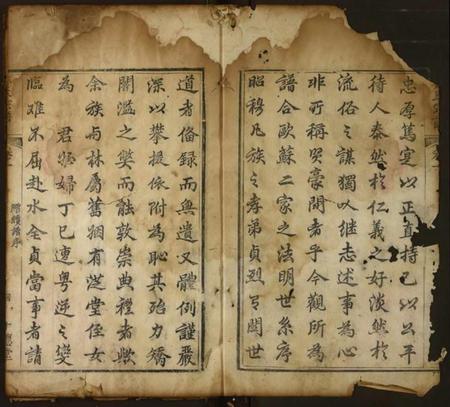 忠厚篤實以正直持己以公平
待人泰然於仁義之好淡然於
流俗之謀獨以继志述事為心
非所稱哭豪開者乎今觀所為
譜合歐蘇二家之法明世系序
昭穆凡族之孝弟貞烈有関世
道者俻録而無遺又體例謹嚴
深以攀援依附為恥其殆力矯
闌濫之獘而能敦崇典禮者歟
余族与林屬舊姻有從堂侄女
為君姪婦丁巳連粤逆之變
臨難不屈赴水全貞當事者請